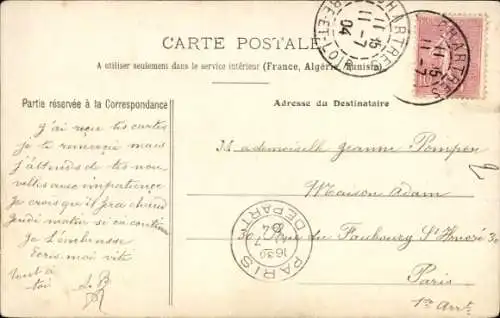 CARTE POSTALE
A utiliser seulement dans le service intérieur (France, Algérie, Tunisie)
CHARTRES
11 15
11 - 7
04
EURE-ET-LOIR
CHARTRES
11 15
11 - 7
Partie réservée à la Correspondance
J'ai reçue tes cartes
Je te remercie mais
J'attends de tes nou
velles avec impatience
Je crois que il fera chaud
Jeudi matin si ca continue
Je t'embrasse
Ecris moi vite
tout à
toi
L. B
Adresse du Destinataire
Mademoiselle Jeanne Pompon
Maison Adam
30 Rue du Faubourg St Honoré 30
Paris
1er Arrt
PARIS
1630
7
04
DEPART